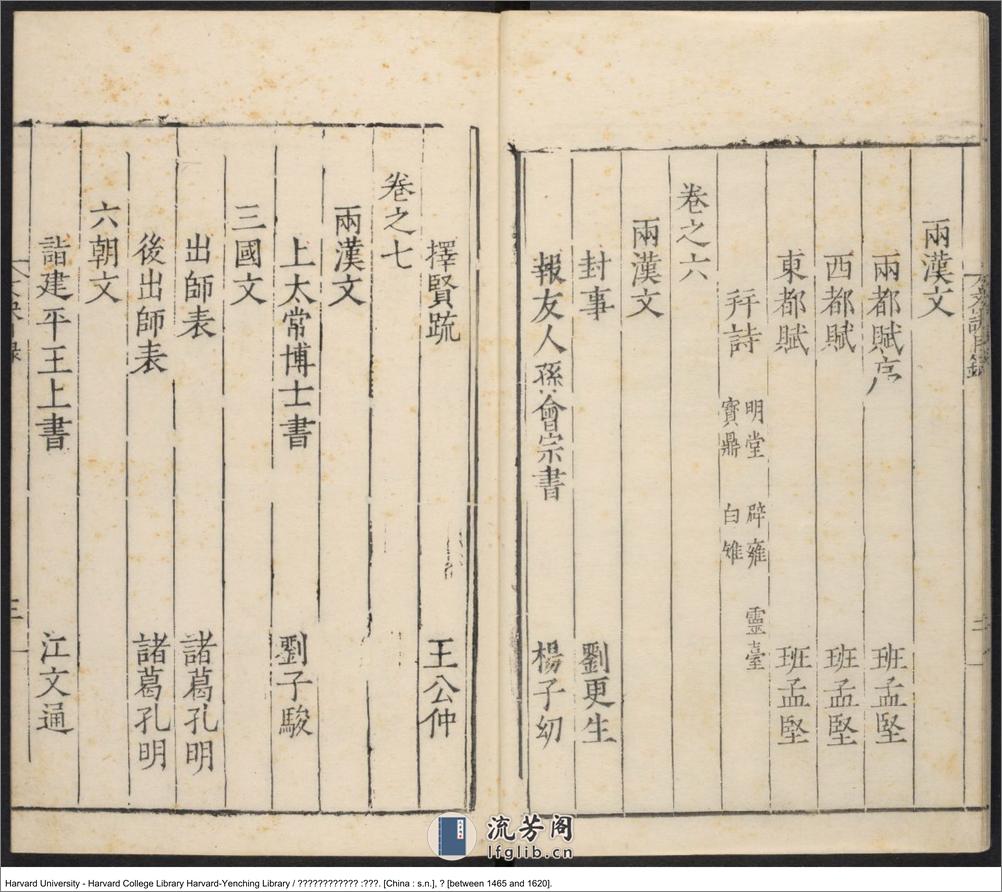 兩漢文
兩都賦序 班孟堅
西都賦 班孟堅
東都賦 班孟堅
并詩 明堂 辟雍 靈臺
寶鼎 白雉
卷之六
兩漢文
封事 劉更生
報友人孫會宗書 楊子幼
擇賢疏 王公仲
卷之七
兩漢文
上太常博士書 劉子駿
三國文
出師表 諸葛孔明
後出師表 諸葛孔明
六朝文
詣建平王上書 江文通
流芳阁
lfglib.cn
Harvard University - Harvard College Library Harvard-Yenching Library / ???????????? :???. [China : s.n.], ? [between 1465 and 1620].